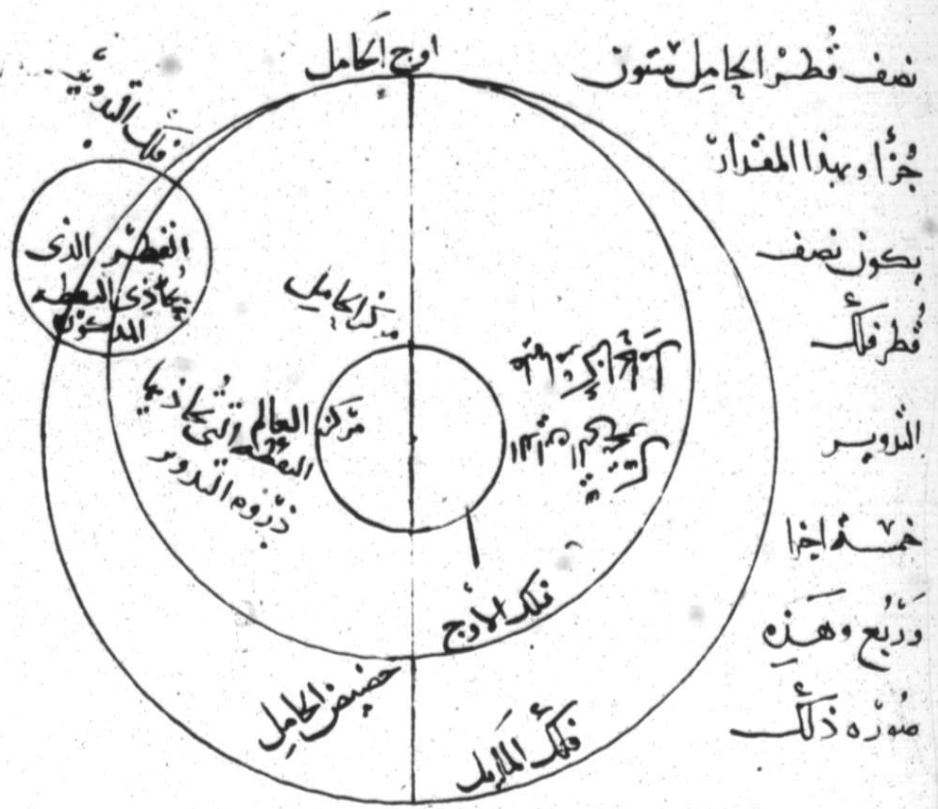 نصف قُطر الحامِل ستون
جُزءًا وبهذا المقدار
يكون نصف
قُطر فلك
التدوير
خمسة اجزا
ورُبُع وهَذِه
صُورة ذلك
اوج الحَامل
فلك التدوير
القطر الذى
يحُاذى النقطه
مركز الحامِل
مَركز العالم
النقطه التى يحاذيها
ذرْوه التدوير
فلك الأوج
حضيض الحامِل
فلك المَايل